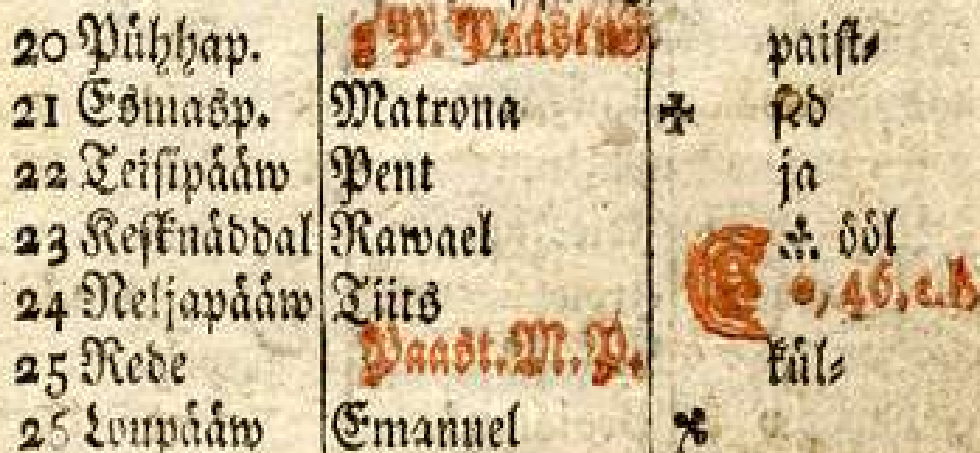 20 Pühhap. P. Paastus. paist⸗
21 Esmasp. Matrona sed
22 Teisipääw Pent ja
23 Kesknäddal Rawael ööl
24 Neljapääw Tiits 46, e.
25 Rede Paast. M. P. kül⸗
26 Loupääw Emanuel